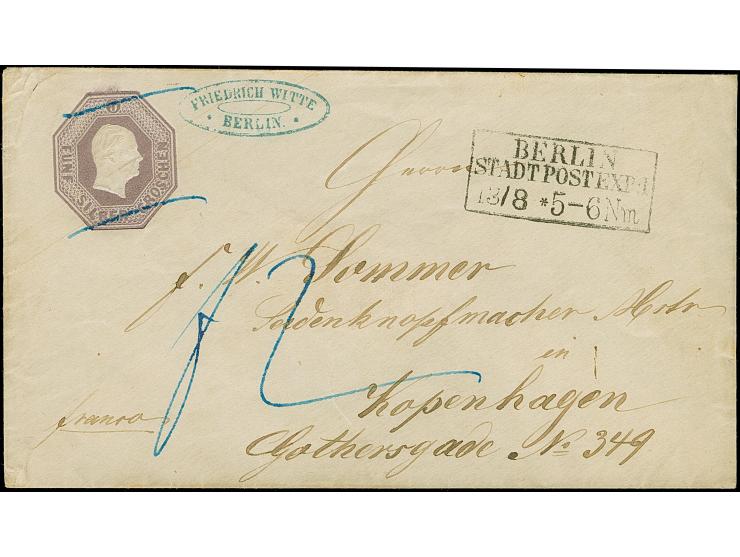 FÜNF
SILBERGROSCHEN
FRIEDRICH WITTE
BERLIN.
BERLIN
STADTPOSTEXPd
13/8 *5-6 Nm
Herrn
f. W. Sommer
Seidenknopfmacher Mstr
in
Kopenhagen
franco
Gothersgade No 349